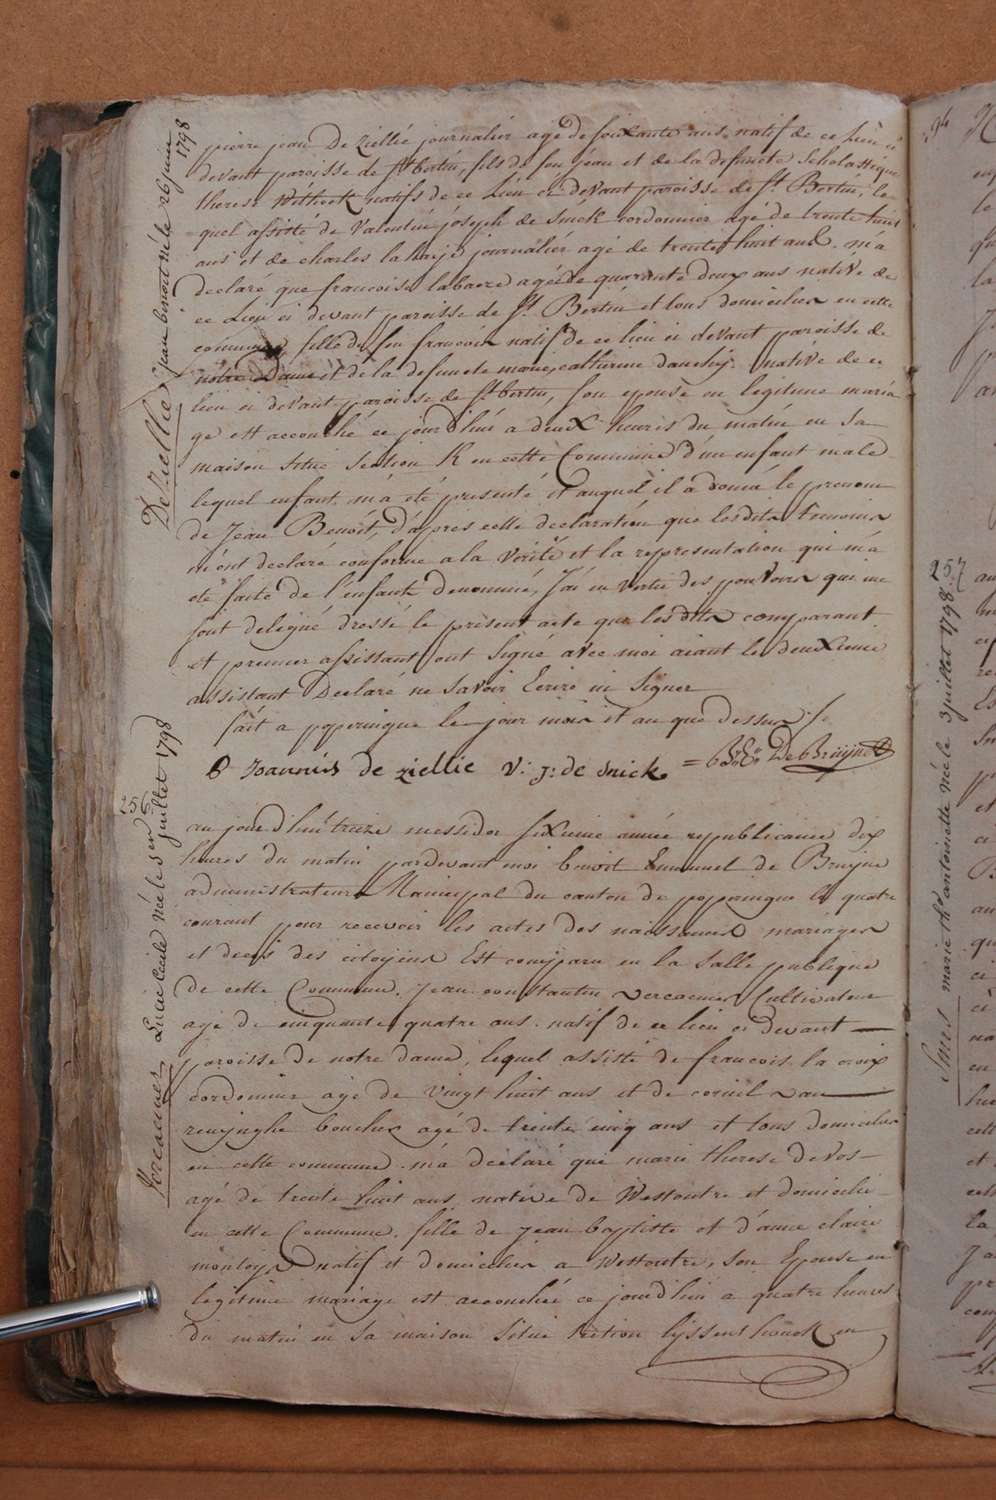 De Ziellie jean benoit né le 26 juin 1798
pierre jean De Ziellie journalier agé de soixante ans natif de ce lieu ci
devant paroisse de St bertin, fils de feu jean et de la defuncte Scholastique
therese natifs de ce Lieu ci devant paroisse de St Bertin, le
quel assisté de Valentin joseph de Snick cordonnier agé de trente huit
ans et de charles la haije journalier agé de trente huit ans m'a
declaré que francoise labaere agée de quarante deux ans native de
ce Lieu ci devant paroisse de St Bertin et tous domiciliés en cette
commune, fille du feu francois natif de ce lieu ci devant paroisse de
notre Dame et de la defuncte marie catherine native de ce
lieu ci devant paroisse de St bertin, son epouse en legitime maria
ge est accouché ce jourd'hui a deux heures du matin en sa
maison située section K en cette Commune d'un enfant male
lequel enfant m'a été presenté et auquel il a donné le prenom
de Jean Benoit, d'apres cette declaration que lesdits temoins
m'ont declaré conforme a la verité et la representation qui m'a
eté faite de l'enfant denommé, J'ai en vertu des pouvoirs qui me
sont delegué dressé le present acte que lesdits comparant
et premier assistant ont signé avec moi aiant le deuxieme
assistant Declaré ne savoir Ecrire ni Signer
fait a poperingue le jour mois et an que dessus
P Joannis de ziellie V: J: de Snick = De Bruyne
256
Vercaemer Lucie Cecile née le 1er juillet 1798
aujourd'hui treize messidor sixieme année republicaine dix
heures du matin pardevant moi benoit Emanuel de Bruyne
administrateur Municipal du canton de poperingue le quatre
courant pour recevoir les actes des naissances mariages
et decès des citoyens Est comparu en la salle publique
de cette Commune, jean constantin vercaemer Cultivateur
agé de cinquante quatre ans natif de ce lieu ci devant
paroisse de notre dame, lequel assisté de francois la croix
cordonnier agé de vingt huit ans et de corneil van
renijnghe boucher agé de trente cinq ans et tous domiciliés
en cette commune m'a declaré que marie therese de vos
agé de trente huit ans native de Westoutre et domicilié
en cette Commune, fille de jean baptiste et d'anne claire
natif et domiciliés a Westoutre, son Epouse en
legitime mariage est accouchée ce jourd'hui a quatre heures
du matin en sa maison située section lyssenthouck en
257
Smis marie thé antoinette née le 3 juillet 1798